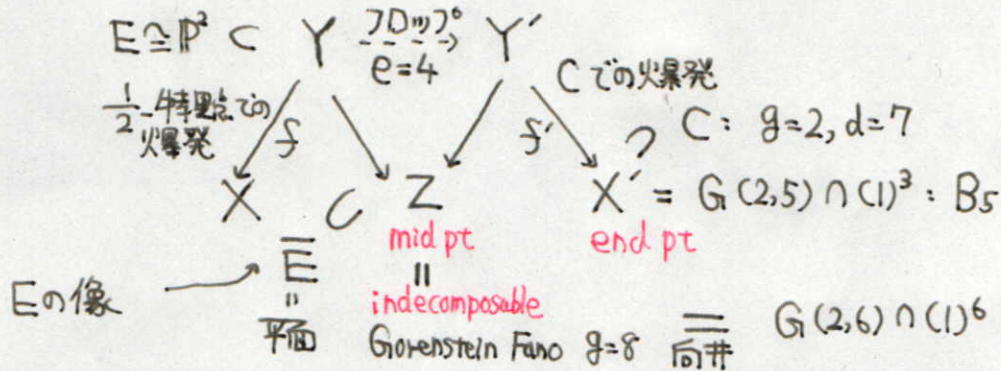 E ≅ P² ⊂ Y フロップ Y'
e=4
1/2-特異点での爆発 f
Cでの爆発 f'
C: g=2, d=7
X ⊂ Z X' = G(2,5)∩(1)³ : B₅
mid pt
end pt
Eの像 → Ē
=
indecomposable
平面 Gorenstein Fano g=8 = 向井 G(2,6)∩(1)⁶